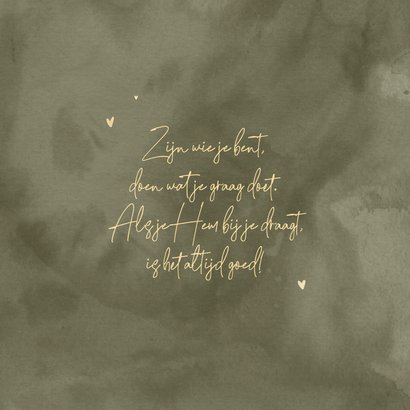 Zijn wie je bent,
doen wat je graag doet.
Als je Hem bij je draagt,
is het altijd goed!